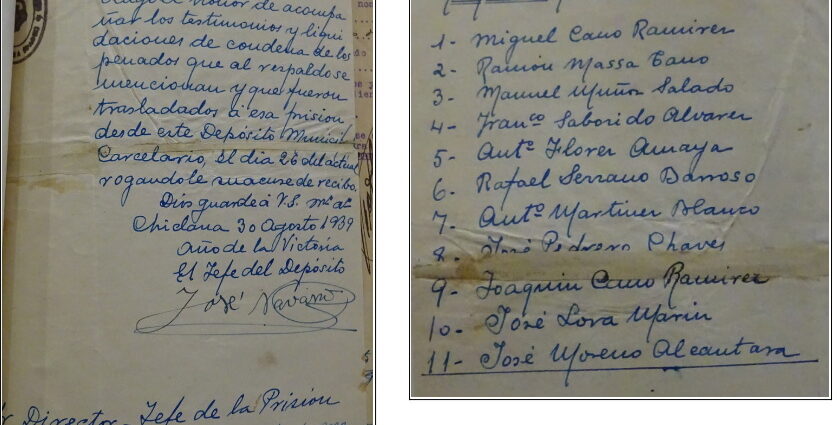 honor de acompa
ñar los testimonios y liqui
daciones de condena de los
penados que al respaldo se
mencionan y que fueron
trasladados a esa prision
desde este Depósito Municipal
Carcelario, el dia 26 del actual
rogandole su acuse de recibo.
Dios guarde á V.S. mˢ aˢ
Chiclana 30 Agosto 1939
Año de la Victoria
El Jefe del Depósito
José Navarro
Director Jefe de la Prisión
1- Miguel Cano Ramirez
2- Ramón Massa Cano
3- Manuel Muñoz Salado
4- Franᶜᵒ Saborido Alvarez
5- Antº Florez Amaya
6- Rafael Serrano Barroso
7- Antº Martinez Blanco
8- José Pedrero Chaves
9- Joaquin Cano Ramirez
10- José Lora Marin
11- José Moreno Alcantara